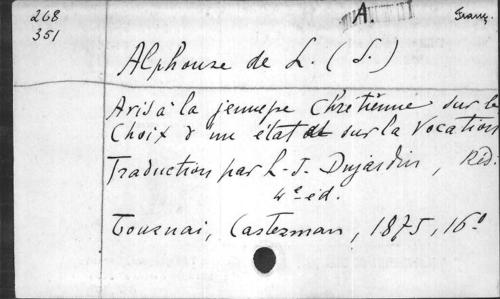 268
351
A.
Franç.
Alphonse de L. (S.)
Avis à la jeunesse Chrétienne sur le
Choix d'un état et sur la Vocation
Traduction par L.-J. Dujardin, Réd.
4e éd.
Tournai, Casterman, 1875, 16°